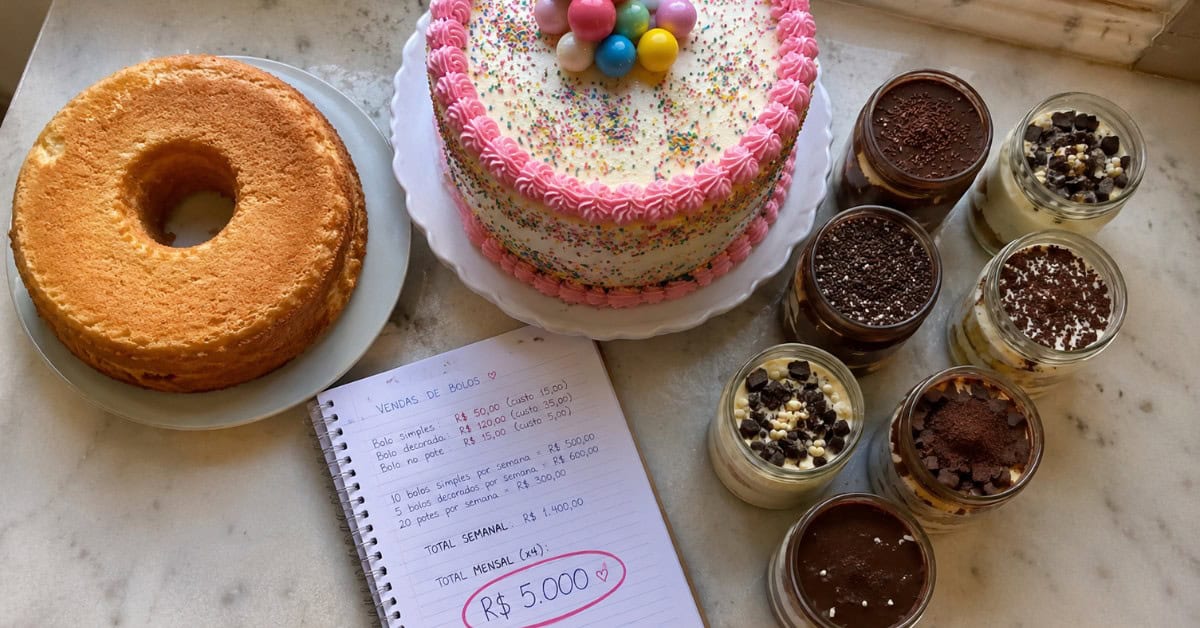 VENDAS DE BOLOS ♡
Bolo simples: R$ 50,00 (custo 15,00)
Bolo decorada: R$ 120,00 (custo 35,00)
Bolo no pote: R$ 15,00 (custo 5,00)
10 bolos simples por semana = R$ 500,00
5 bolos decorados por semana = R$ 600,00
20 potes por semana = R$ 300,00
TOTAL SEMANAL: R$ 1.400,00
TOTAL MENSAL (x4):
R$ 5.000 ♡